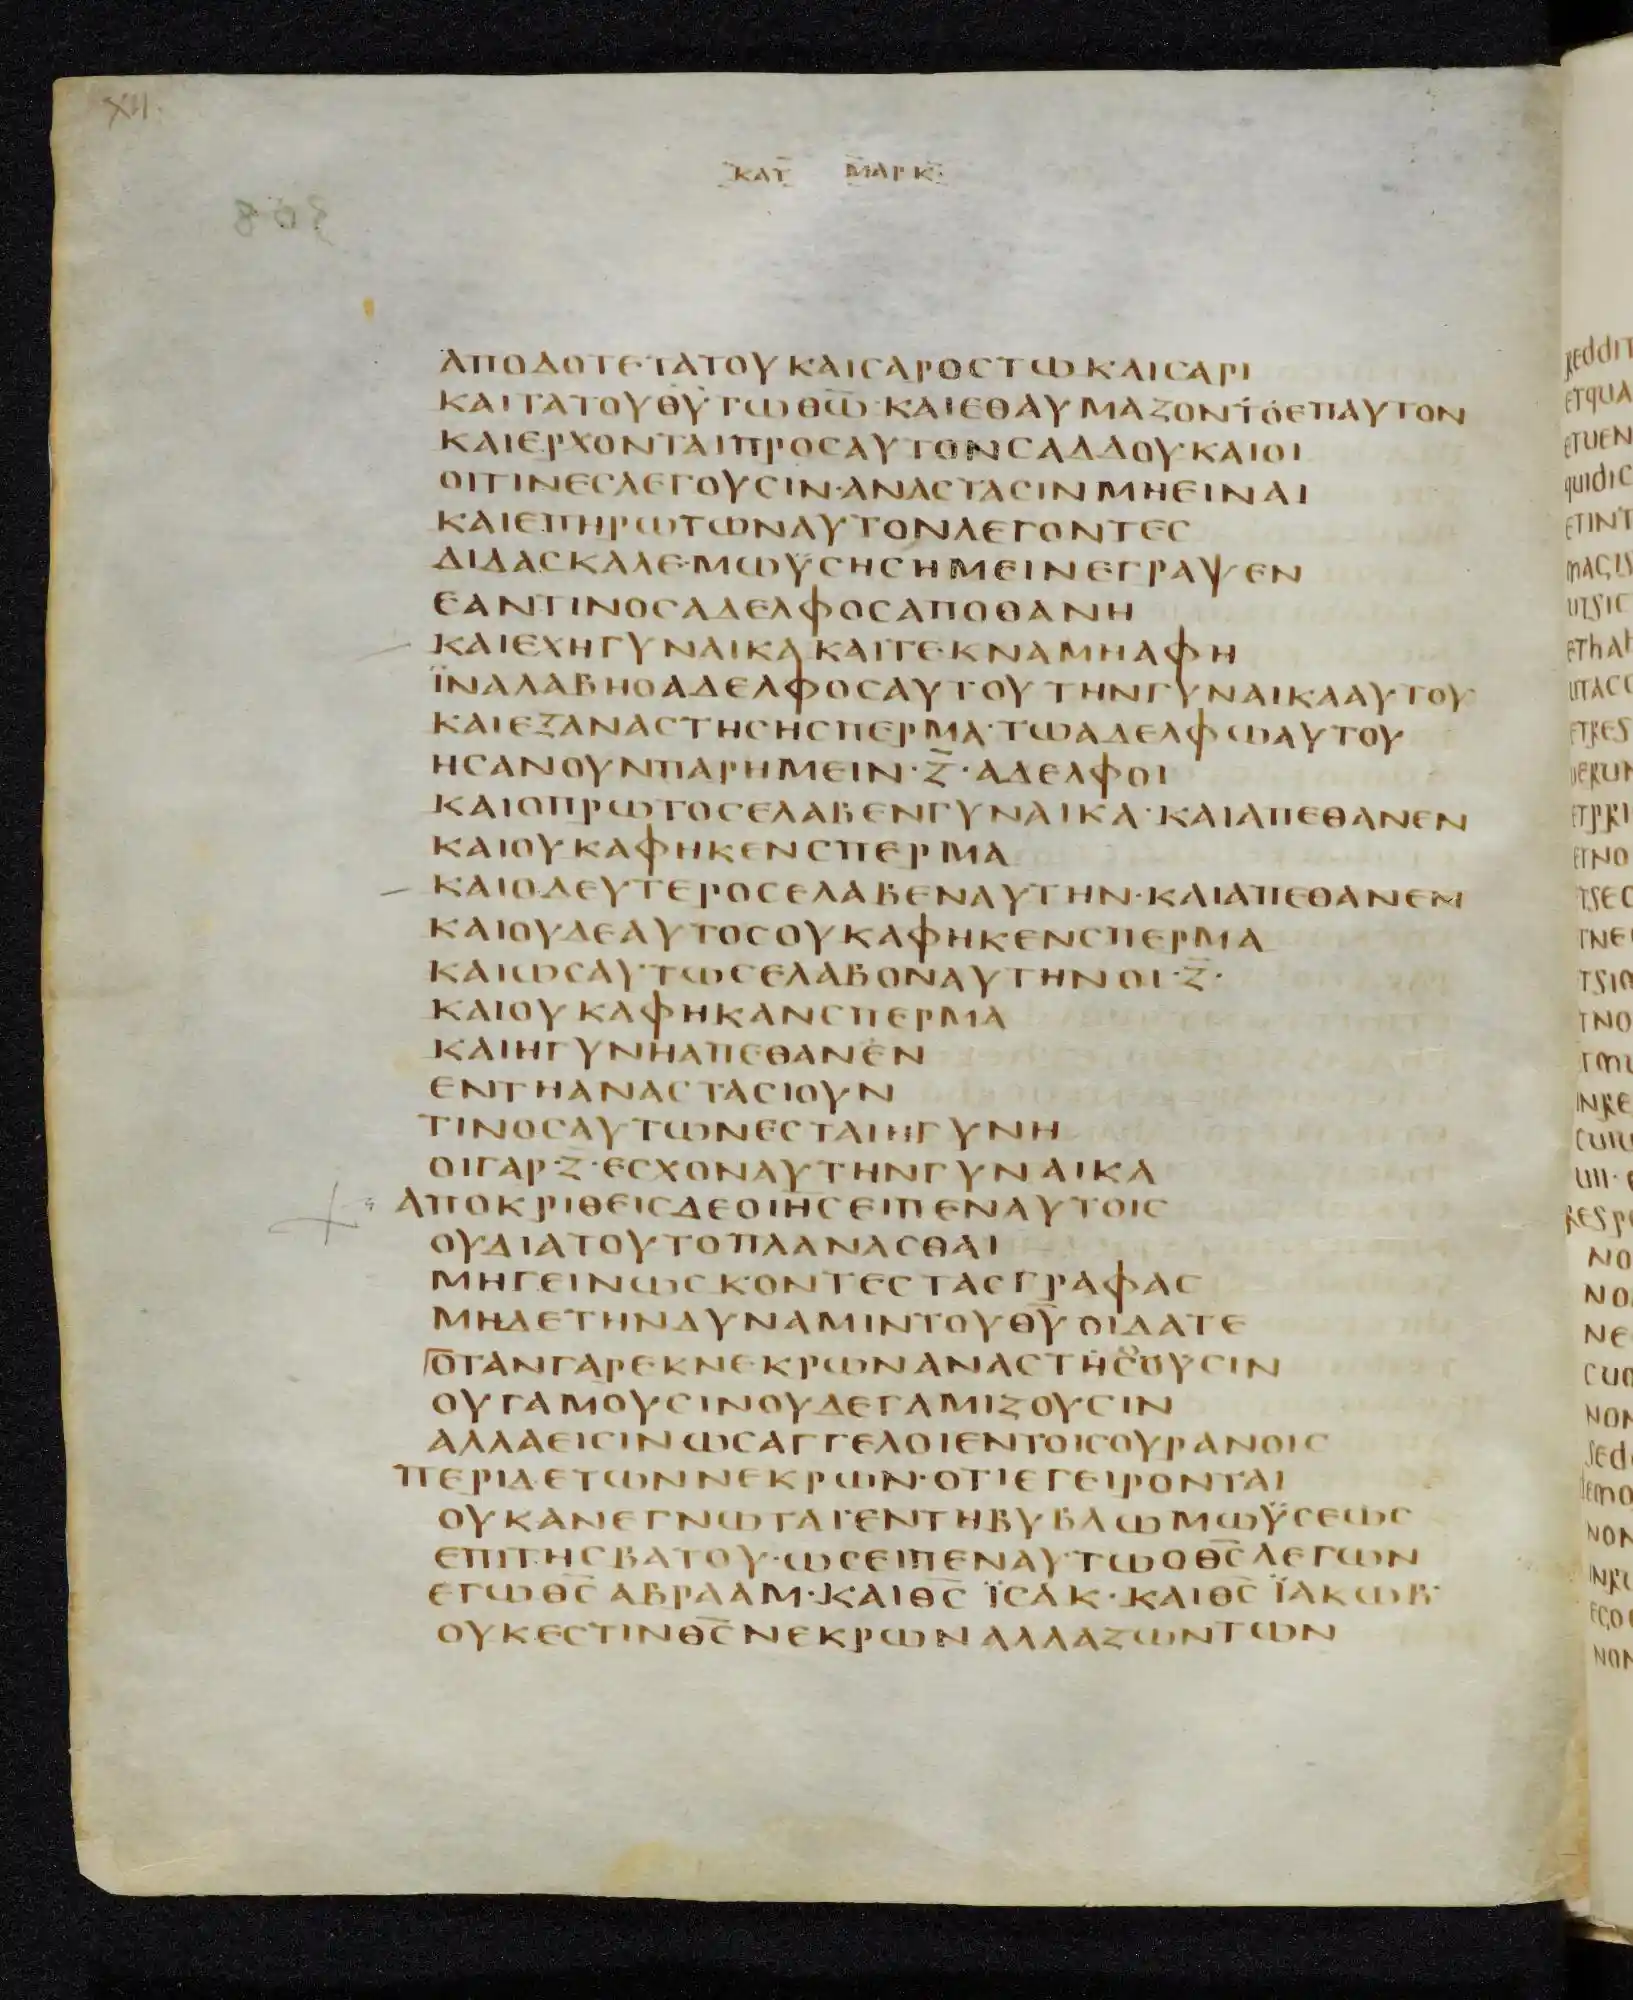 XII.
ΚΑΤ ΜΑΡΚ
308
ΑΠΟΔΟΤΕΤΑΤΟΥΚΑΙСΑΡΟСΤΩΚΑΙСΑΡΙ
ΚΑΙΤΑΤΟΥΘ̅Υ̅ΤΩΘ̅Ω̅·ΚΑΙΕΘΑΥΜΑΖΟΝΤΟΕΠΑΥΤΟΝ
ΚΑΙΕΡΧΟΝΤΑΙΠΡΟСΑΥΤΟΝСΑΔΔΟΥΚΑΙΟΙ
ΟΙΤΙΝΕСΛΕΓΟΥСΙΝ·ΑΝΑСΤΑСΙΝΜΗΕΙΝΑΙ
ΚΑΙΕΠΗΡΩΤΩΝΑΥΤΟΝΛΕΓΟΝΤΕС
ΔΙΔΑСΚΑΛΕ·ΜΩΫСΗСΗΜΕΙΝΕΓΡΑΨΕΝ
ΕΑΝΤΙΝΟСΑΔΕΛΦΟСΑΠΟΘΑΝΗ
ΚΑΙΕΧΗΓΥΝΑΙΚΑΚΑΙΤΕΚΝΑΜΗΑΦΗ
ΪΝΑΛΑΒΗΟΑΔΕΛΦΟСΑΥΤΟΥΤΗΝΓΥΝΑΙΚΑΑΥΤΟΥ
ΚΑΙΕΞΑΝΑСΤΗСΗСΠΕΡΜΑ·ΤΩΑΔΕΛΦΩΑΥΤΟΥ
ΗСΑΝΟΥΝΠΑΡΗΜΕΙΝ·Ζ̅·ΑΔΕΛΦΟΙ
ΚΑΙΟΠΡΩΤΟСΕΛΑΒΕΝΓΥΝΑΙΚΑ·ΚΑΙΑΠΕΘΑΝΕΝ
ΚΑΙΟΥΚΑΦΗΚΕΝСΠΕΡΜΑ
ΚΑΙΟΔΕΥΤΕΡΟСΕΛΑΒΕΝΑΥΤΗΝ·ΚΑΙΑΠΕΘΑΝΕΝ
ΚΑΙΟΥΔΕΑΥΤΟСΟΥΚΑΦΗΚΕΝСΠΕΡΜΑ
ΚΑΙΩСΑΥΤΩСΕΛΑΒΟΝΑΥΤΗΝΟΙ·Ζ̅·
ΚΑΙΟΥΚΑΦΗΚΑΝСΠΕΡΜΑ
ΚΑΙΗΓΥΝΗΑΠΕΘΑΝΕΝ
ΕΝΤΗΑΝΑСΤΑСΙΟΥΝ
ΤΙΝΟСΑΥΤΩΝΕСΤΑΙΗΓΥΝΗ
ΟΙΓΑΡ·Ζ̅·ΕСΧΟΝΑΥΤΗΝΓΥΝΑΙΚΑ
ΑΠΟΚΡΙΘΕΙСΔΕΟΙ̅Η̅С̅ΕΙΠΕΝΑΥΤΟΙС
ΟΥΔΙΑΤΟΥΤΟΠΛΑΝΑСΘΑΙ
ΜΗΓΕΙΝΩСΚΟΝΤΕСΤΑСΓΡΑΦΑС
ΜΗΔΕΤΗΝΔΥΝΑΜΙΝΤΟΥΘ̅Υ̅ΟΙΔΑΤΕ
ΟΤΑΝΓΑΡΕΚΝΕΚΡΩΝΑΝΑСΤΗСΟΥСΙΝ
ΟΥΓΑΜΟΥСΙΝΟΥΔΕΓΑΜΙΖΟΥСΙΝ
ΑΛΛΑΕΙСΙΝΩСΑΓΓΕΛΟΙΕΝΤΟΙСΟΥΡΑΝΟΙС
ΠΕΡΙΔΕΤΩΝΝΕΚΡΩΝ·ΟΤΙΕΓΕΙΡΟΝΤΑΙ
ΟΥΚΑΝΕΓΝΩΤΑΙΕΝΤΗΒΥΒΛΩΜΩΫСΕΩС
ΕΠΙΤΗСΒΑΤΟΥ·ΩСΕΙΠΕΝΑΥΤΩΟΘ̅С̅ΛΕΓΩΝ
ΕΓΩΘ̅С̅ΑΒΡΑΑΜ·ΚΑΙΘ̅С̅ΪСΑΚ·ΚΑΙΘ̅С̅ΪΑΚΩΒ·
ΟΥΚΕСΤΙΝΘ̅С̅ΝΕΚΡΩΝΑΛΛΑΖΩΝΤΩΝ